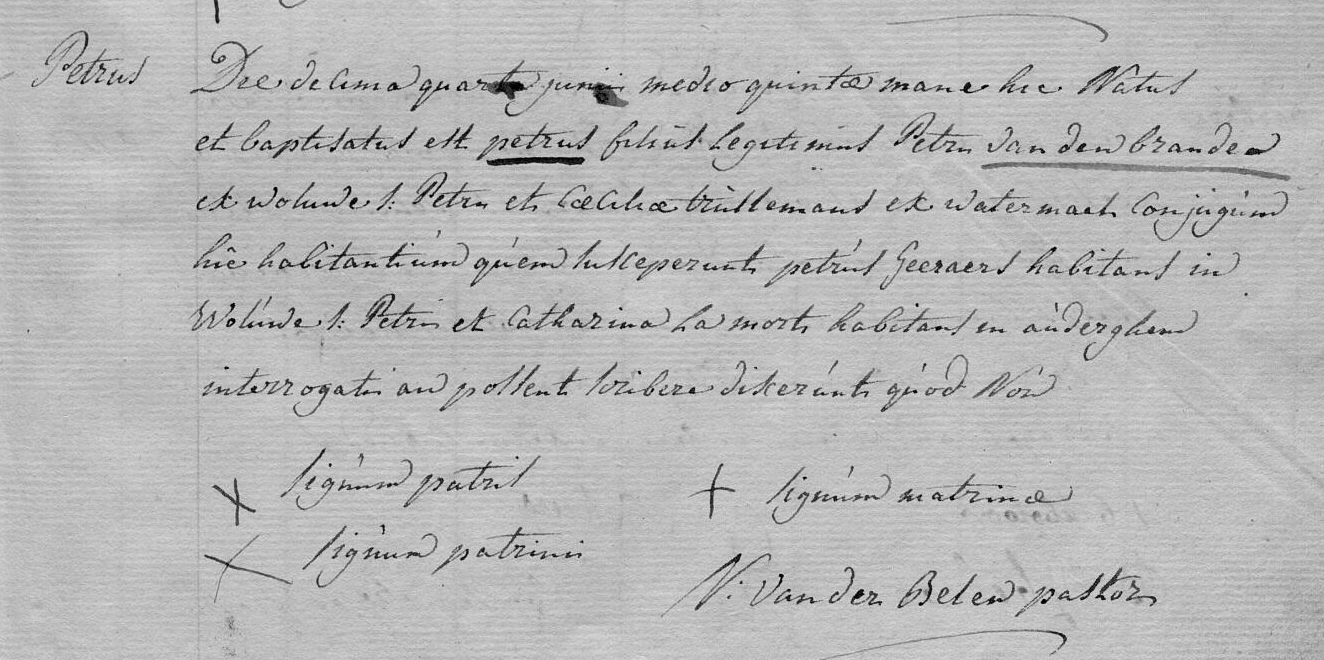 Petrus
Die decima quarta junii medio quintæ mane hic Natus
et baptisatus est petrus filius Legitimus Petri van den branden
ex woluwe s: Petri et Cæciliæ trullemans ex watermael Conjugum
hic habitantium quem susceperunt petrus Geeraers habitans in
Woluwe s: Petri et Catharina La mort habitans in auderghem
interrogati an possent scribere dixerunt quod Non
signum patris
signum matrinæ
signum patrini
N: Van der Belen pastor